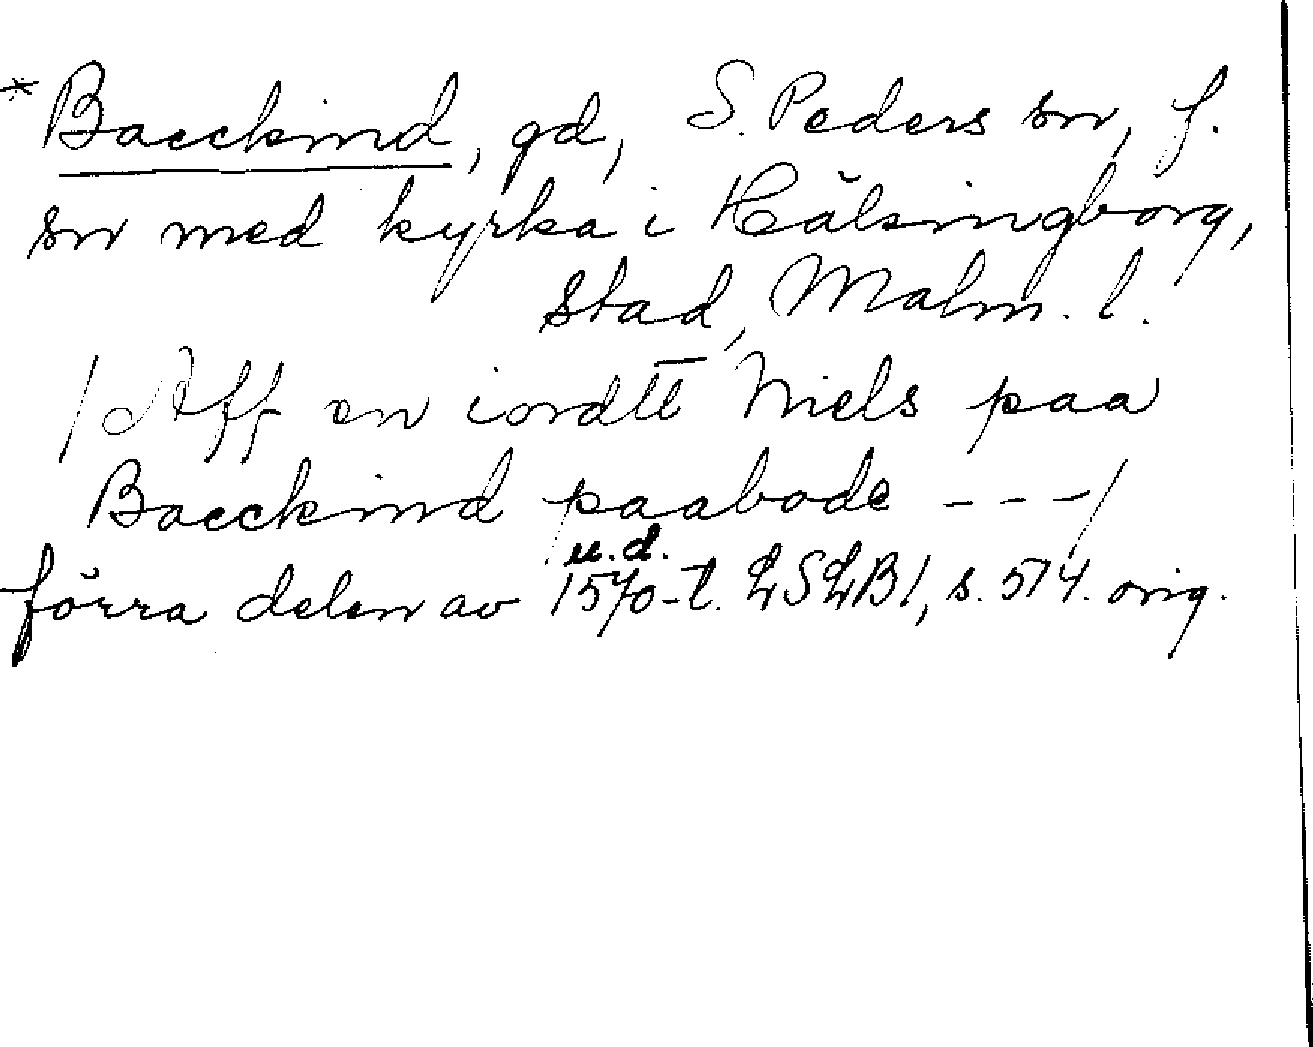 * Baeckind, gd, S. Peders sn, f.
sn med kyrka i Hälsingborg,
stad, Malm. l.
/ Aff en iordtt Niels paa
Baeckind paabode ---/
u.d.
förra delen av 1570-t. LSLB1, s. 574. orig.